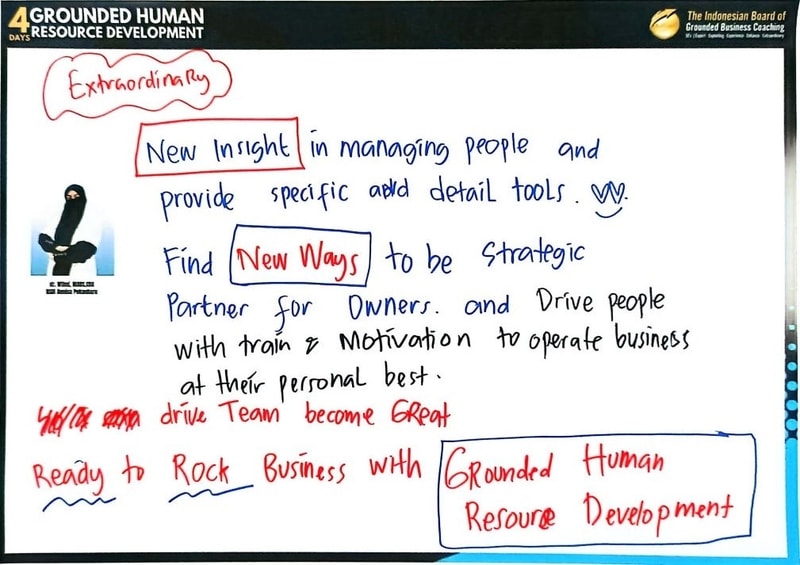 4 DAYS GROUNDED HUMAN
RESOURCE DEVELOPMENT
The Indonesian Board of
Grounded Business Coaching
Extraordinary
New Insight in managing people and
provide specific and detail tools.
Find New Ways to be Strategic
Partner for Owners. and Drive people
with train & Motivation to operate business
at their personal best.
drive Team become GReat
Ready to Rock Business with GRounded Human
Resource Development